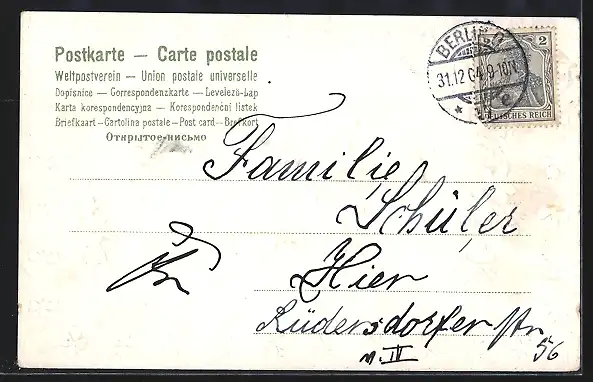 Postkarte — Carte postale
Weltpostverein – Union postale universelle
Dopisnice – Correspondenzkarte – Levelező-Lap
Karta korespondencyjna – Korespondenční lístek
Briefkaart – Cartolina postale – Post card – Brefkort
Открытое-письмо
BERLIN, O
31.12 04 9-10N.
* e
2
DEUTSCHES REICH
Familie
Schüler
Hier
Rüdersdorfer Str.
56
n. IV